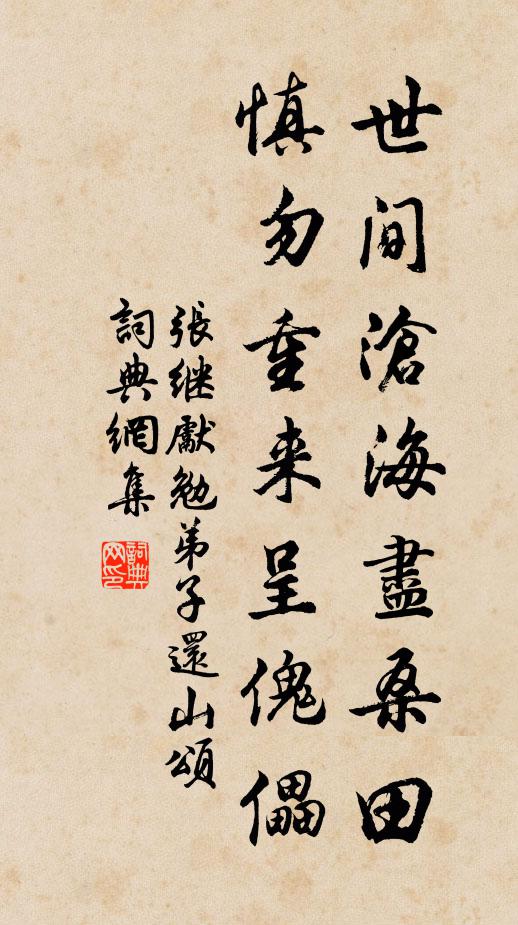 世间滄海盡桑田
慎勿重来呈傀儡
張继獻勉弟子還山頌
詞典網集
詞典
网印